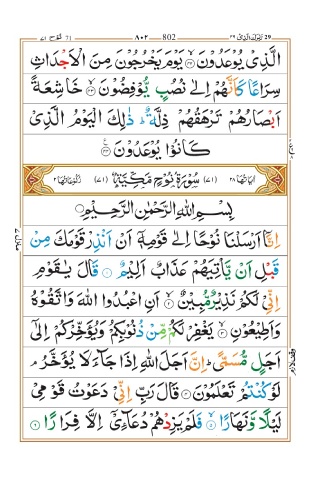 29 تَبٰرَكَ الَّذِىْ ٢٩ 802 ٨٠٢ نُوْح ٧١ 71
الَّذِىْ يُوْعَدُوْنَ ۙ﴿۴۲﴾ يَوْمَ يَخْرُجُوْنَ مِنَ الْاَجْدَاثِ
سِرَاعًا كَاَنَّهُمْ اِلٰى نُصُبٍ يُّوْفِضُوْنَ ۙ﴿۴۳﴾ خَاشِعَةً
اَبْصَارُهُمْ تَرْهَقُهُمْ ذِلَّةٌ ؕ ذٰلِكَ الْيَوْمُ الَّذِىْ
كَانُوْا يُوْعَدُوْنَ ﴿۴۴﴾
اٰيَاتُهَا ٢٨ (٧١) سُوْرَةُ نُوْحٍ مَكِّيَّةٌ (٧١) رُكُوْعَاتُهَا ٢
بِسْمِ اللّٰهِ الرَّحْمٰنِ الرَّحِيْمِ
اِنَّاۤ اَرْسَلْنَا نُوْحًا اِلٰى قَوْمِهٖۤ اَنْ اَنْذِرْ قَوْمَكَ مِنْ
قَبْلِ اَنْ يَّاْتِيَهُمْ عَذَابٌ اَلِيْمٌ ﴿۱﴾ قَالَ يٰقَوْمِ
اِنِّىْ لَكُمْ نَذِيْرٌ مُّبِيْنٌ ۙ﴿۲﴾ اَنِ اعْبُدُوا اللّٰهَ وَاتَّقُوْهُ
وَاَطِيْعُوْنِ ۙ﴿۳﴾ يَغْفِرْ لَكُمْ مِّنْ ذُنُوْبِكُمْ وَيُؤَخِّرْكُمْ اِلٰٓى
اَجَلٍ مُّسَمًّى ؕ اِنَّ اَجَلَ اللّٰهِ اِذَا جَآءَ لَا يُؤَخَّرُ ۘ
لَوْ كُنْتُمْ تَعْلَمُوْنَ ﴿۴﴾ قَالَ رَبِّ اِنِّىْ دَعَوْتُ قَوْمِىْ
لَيْلًا وَّنَهَارًا ۙ﴿۵﴾ فَلَمْ يَزِدْهُمْ دُعَآءِىْۤ اِلَّا فِرَارًا ﴿۶﴾